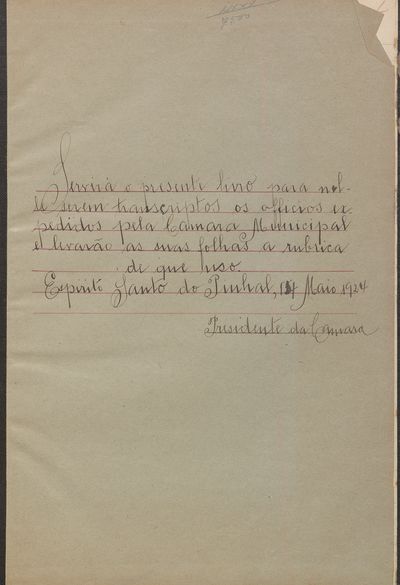 Servirá o presente livro para nel-
le serem transcriptos os officios ex-
pedidos pela Camara Municipal
e levarão as suas folhas a rubrica
de que uso
Espirito Santo do Pinhal, 14 Maio 1924
Presidente da Camara